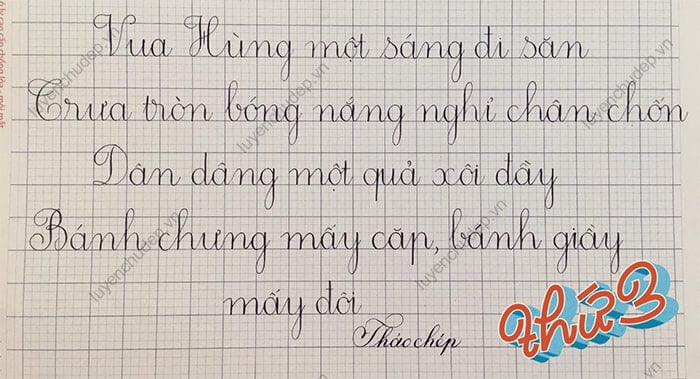 Vua Hùng một sáng đi săn
Trưa tròn bóng nắng nghỉ chân chốn
Dân dâng một quả xôi đầy
Bánh chưng mấy cặp, bánh giầy
mấy đôi
Thảo chép
thứ 3
luyenchudep.vn
luyenchudep.vn
luyenchudep.vn
luyenchudep.vn
luyenchudep.vn
luyenchudep.vn